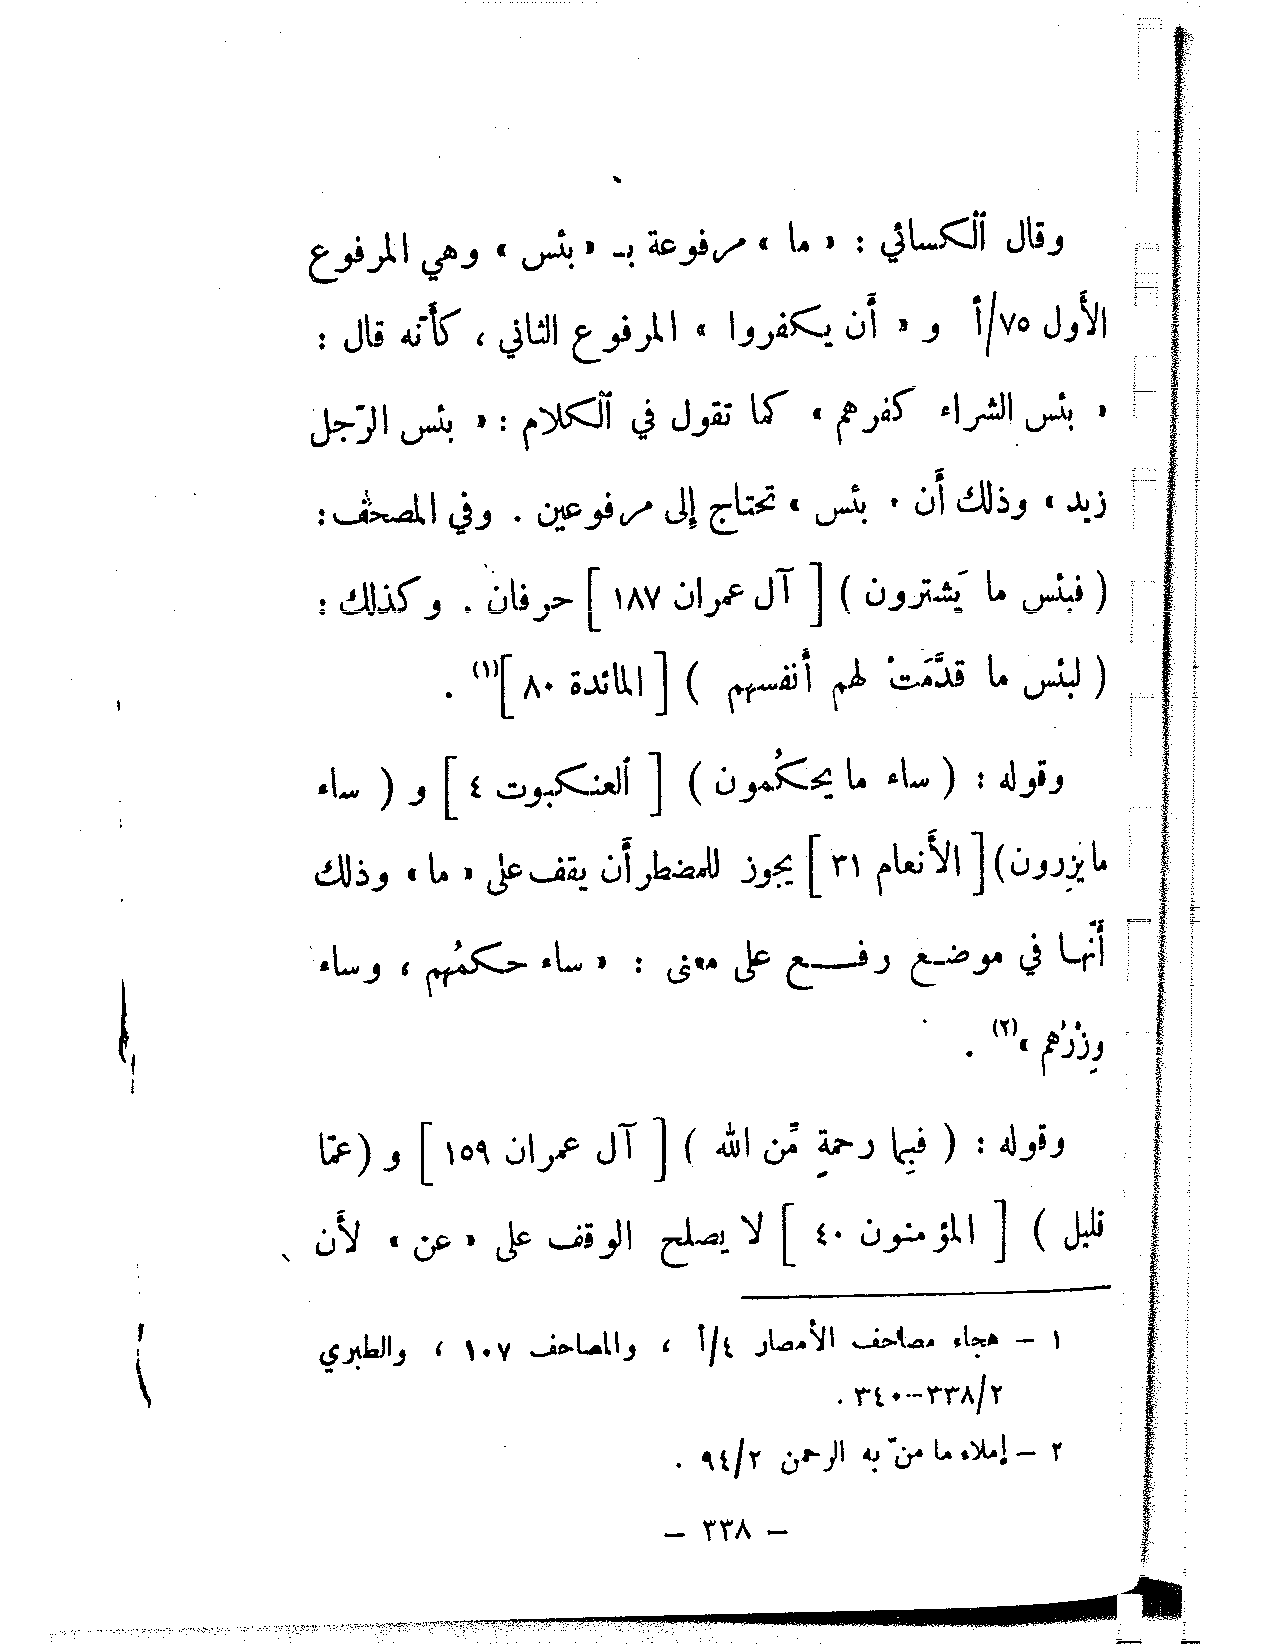 وقال ٱلكسائي : « ما » مرفوعة بـ « بئس » وهي المرفوع
الأول ٧٥/أ و « أن يكفروا » المرفوع الثاني ، كأنّه قال :
« بئس الشراء كفرهم » كما تقول في ٱلكلام : « بئس الرّجل
زيد » وذلك أن « بئس » تحتاج إلى مرفوعين . وفي المصحف :
( فبئس ما يَشترون ) [ آل عمران ١٨٧ ] حرفان . وكذلك :
( لبئس ما قدَّمَتْ لهم أنفسهم ) [ المائدة ٨٠ ](١) .
وقوله : ( ساء ما يحكُمون ) [ ٱلعنكبوت ٤ ] و ( ساء
ما يزِرون) [ الأنعام ٣١ ] يجوز للمضطر أن يقف على « ما » وذلك
أنّها في موضع رفع على معنى : « ساء حكمُهم ، وساء
وِزْرُهم »(٢) .
وقوله : ( فبِما رحمةٍ مِّن الله ) [ آل عمران ١٥٩ ] و (عمّا
قليل ) [ المؤمنون ٤٠ ] لا يصلح الوقف على « عن » لأن
١ – هجاء مصاحف الأمصار ٤/أ ، والمصاحف ١٠٧ ، والطبري
٣٣٨/٢–٣٤٠ .
٢ – إملاء ما منّ به الرحمن ٩٤/٢ .
– ٣٣٨ –